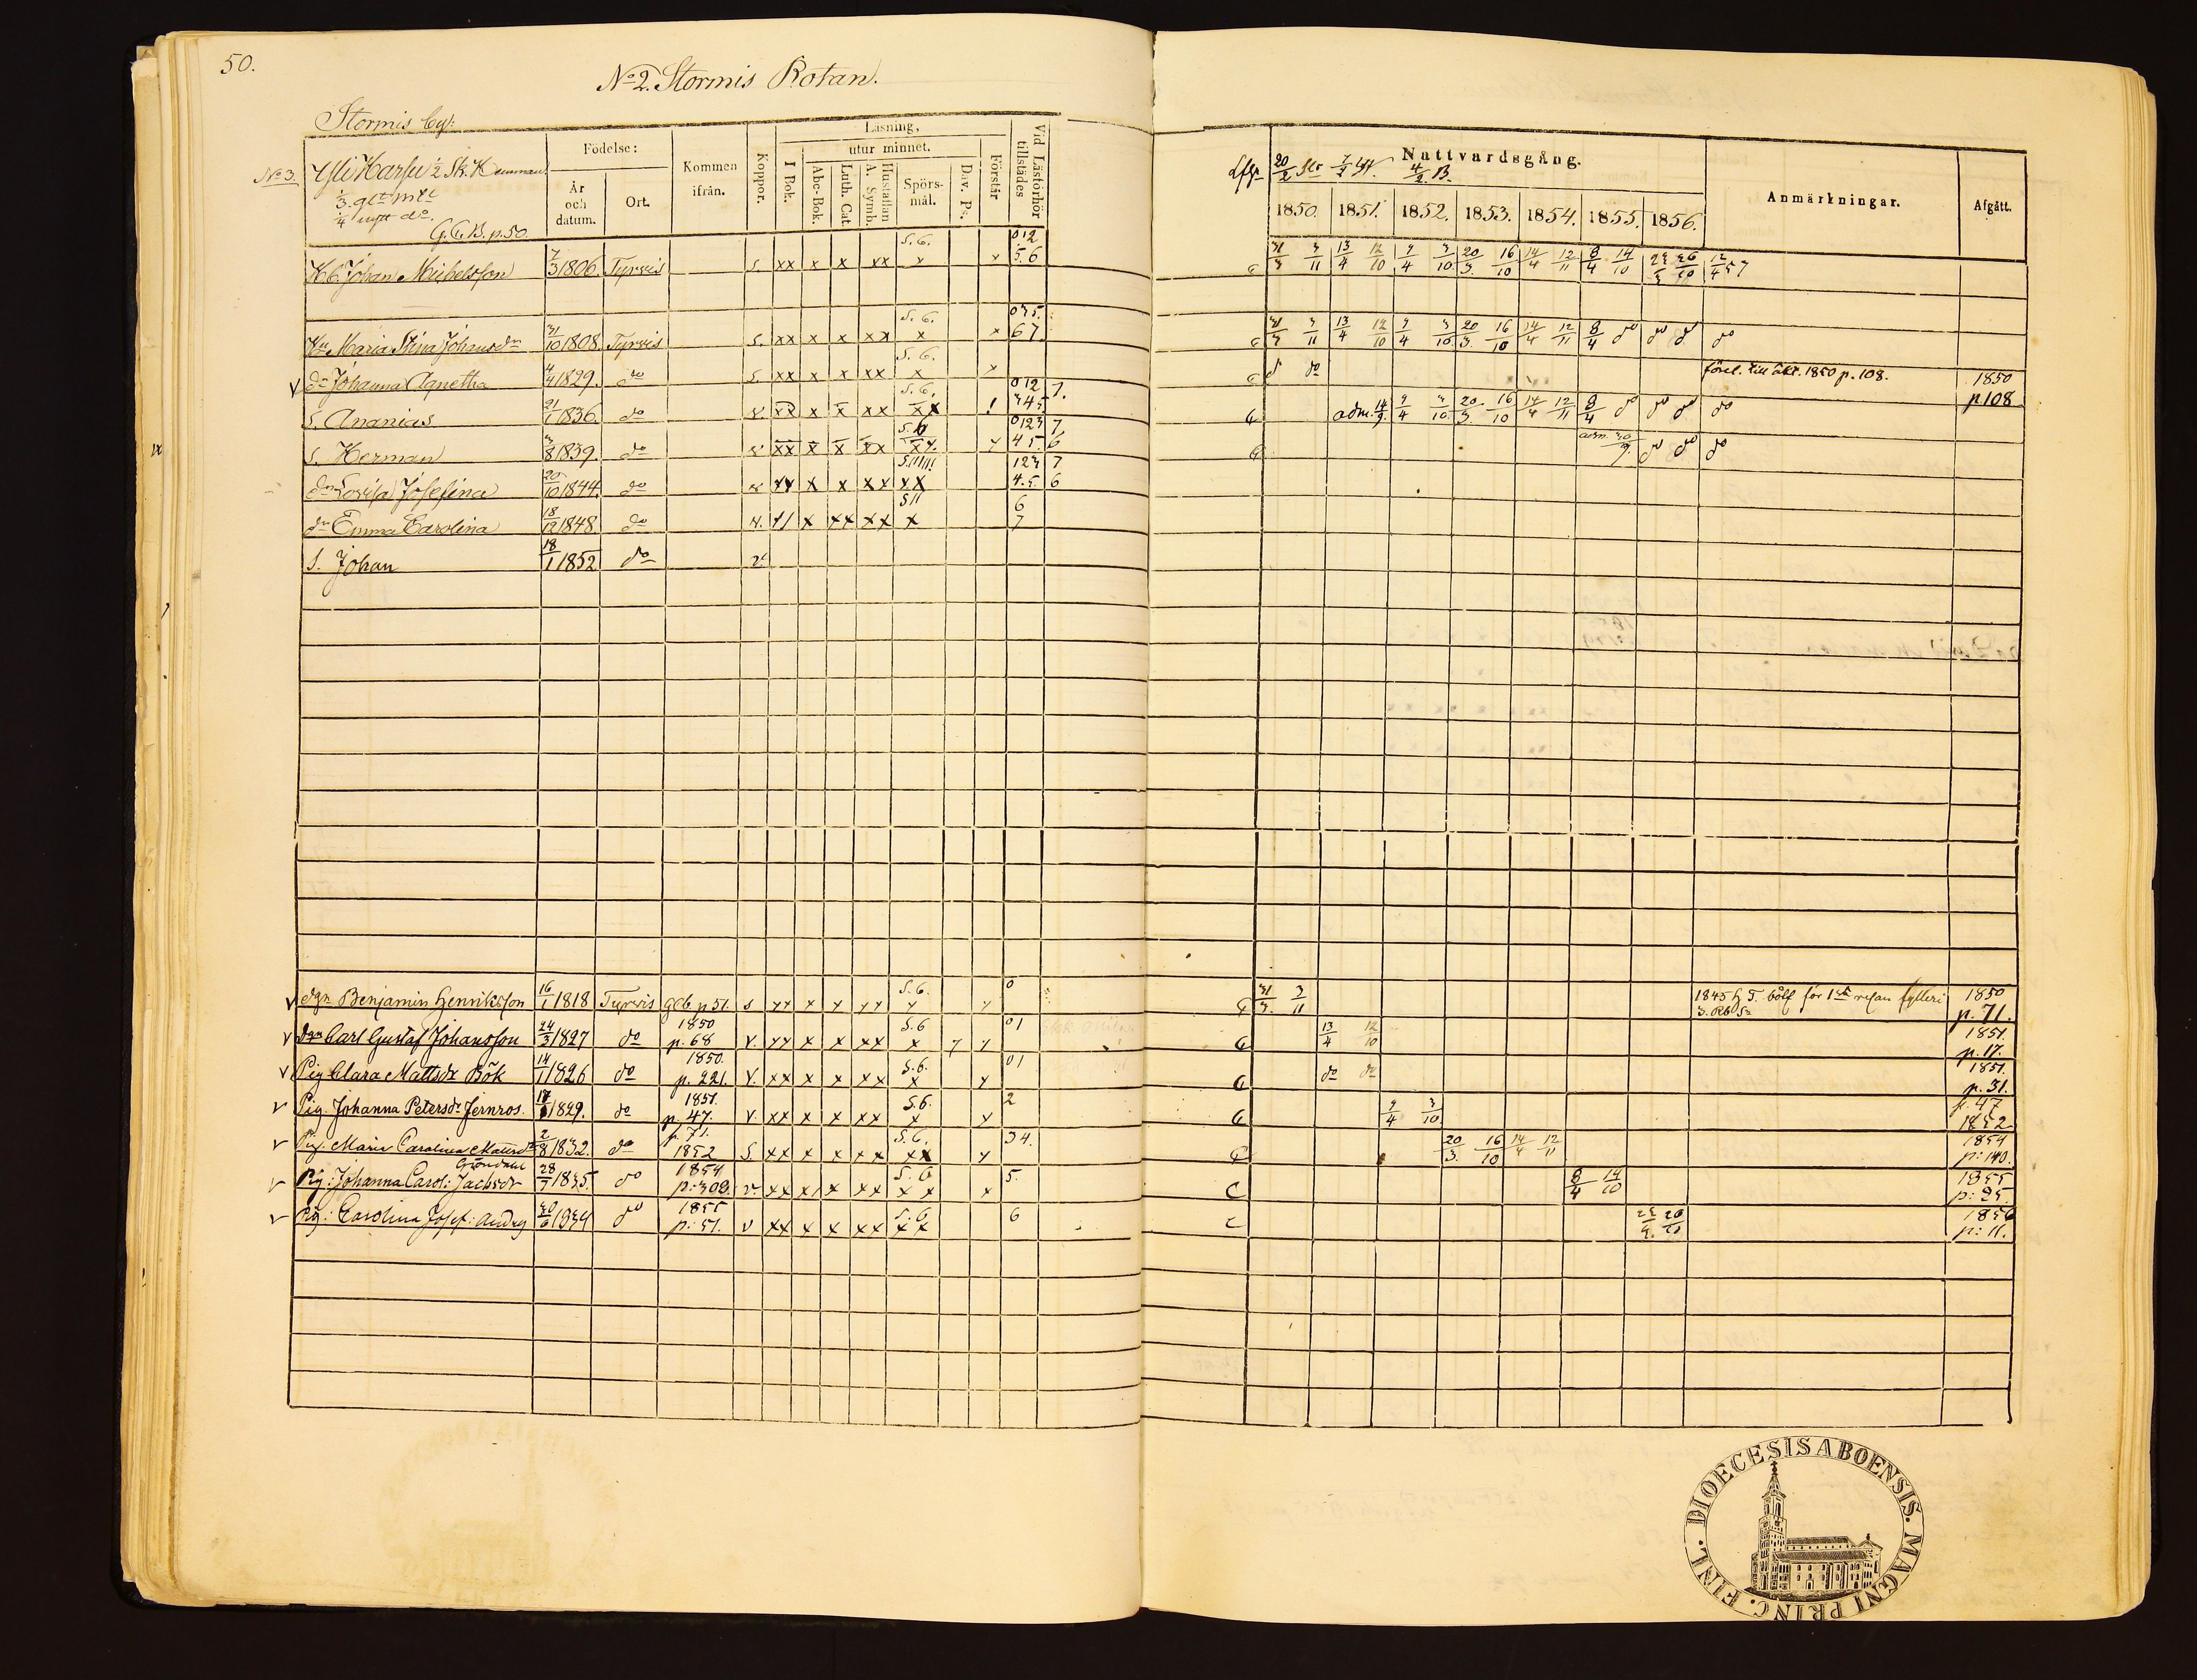 50.
No 2. Stormis Rotan.
Stormis by:
No 3. Yli Karhu 1/2 Sk. Hemman
1/3 glt mtl
1/4 nytt do.
G.C.B. p. 50.
Födelse:
År och datum.
Ort.
Kommen ifrån.
Koppor.
Läsning,
utur minnet.
I Bok.
Abc-Bok.
Luth. Cat.
Hustaflan A. Symb.
Spörsmål.
Dav. Ps.
Förstår
Vid Läsförhör tillstädes
Nattvardsgång.
1850. 1851. 1852. 1853. 1854. 1855. 1856.
Anmärkningar.
Afgått.
Hb. Johan Michelsson 7/3 1806. Tyrvis S. xx x x xx S.6. x x 012 5.6 31/3 3/11 13/4 12/10 9/4 3/10 20/3. 16/10 14/4 12/11 8/4 14/10 12/4 57
Hu Maria Stina Johansdr 31/10 1808. Tyrvis S. xx x x xx S.6. x x 035. 67. 31/3 3/11 13/4 12/10 9/4 3/10. 20/3. 16/10 14/4 12/11 8/4 do do do do
V dr Johanna Agnetha 4/4 1829. do S. xx x x xx S.6. x x do förel. till äkt. 1850 p. 108. 1850 p 108
S. Ananias 21/1 1836. do xx x x xx S.6. xx 012 7. 345 adm. 14/9. 9/4 3/10. 20/3. 16/10 14/4 12/11 8/4 do do do do
S. Herman 3/8 1839. do xx x x xx S.6 xx. 0123 7, 45 6 adm. 30/9. do do do
dr Lovisa Josefina 20/10 1844. do xx x x xx xx 123 7 4.5. 6
dr Emma Carolina 18/12 1848. do x xx xx x 6 7
S. Johan 18/1 1852 do
V dgn Benjamin Henriksson 16/1 1818 Tyrvis gcb p 51. S xx x x xx S.6. 0 31/3. 3/11 1845 h. T. bött för 1sta resan fylleri 1850 p. 71.
V Carl Gustaf Johansson 24/3 1827 do 1850 p. 68 V. xx x x xx S.6 x 01 13/4 12/10 1851. p. 17.
V Pig Clara Mattsdr Bök 14/1 1826 do 1850. p. 221. V. xx x x xx S.6. x 01 do do 1851. p. 31.
V Pig. Johanna Petersdr Jernros. 1829. do 1851. p. 47. V. xx x x xx S.6. x 2 9/4 3/10. p. 47 1852
V Pig. Maria Carolina Mattsdr Gröndahl 2/8 1832. do p. 71. 1852 S. xx x x xx S.6. xx 34. 20/3. 16/10 14/4 12/11 1854 p: 140.
V Pig: Johanna Carol: Jacobsdr 28/7 1835. do 1854 p: 309. V. xx x x xx S.6 x x 5. 8/4 14/10 1855 p: 25.
V Pig: Carolina Josef: 30/6 1834 do 1855 p: 51. V xx x x xx S.6 x x 6 1856 p: 11.
DIOECESIS ABOENSIS. MAGNI PRINC. FINL.